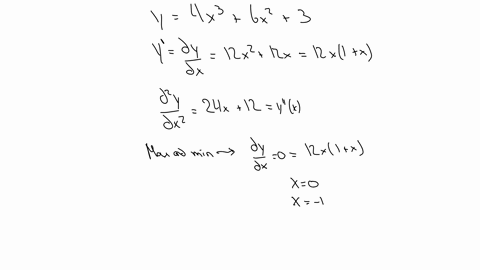 y = 4x³ + 6x² + 3
y' = ∂y/∂x = 12x² + 12x = 12x(1+x)
∂²y/∂x² = 24x + 12 = y''(x)
Max and min → ∂y/∂x = 0 = 12x(1+x)
x = 0
x = -1